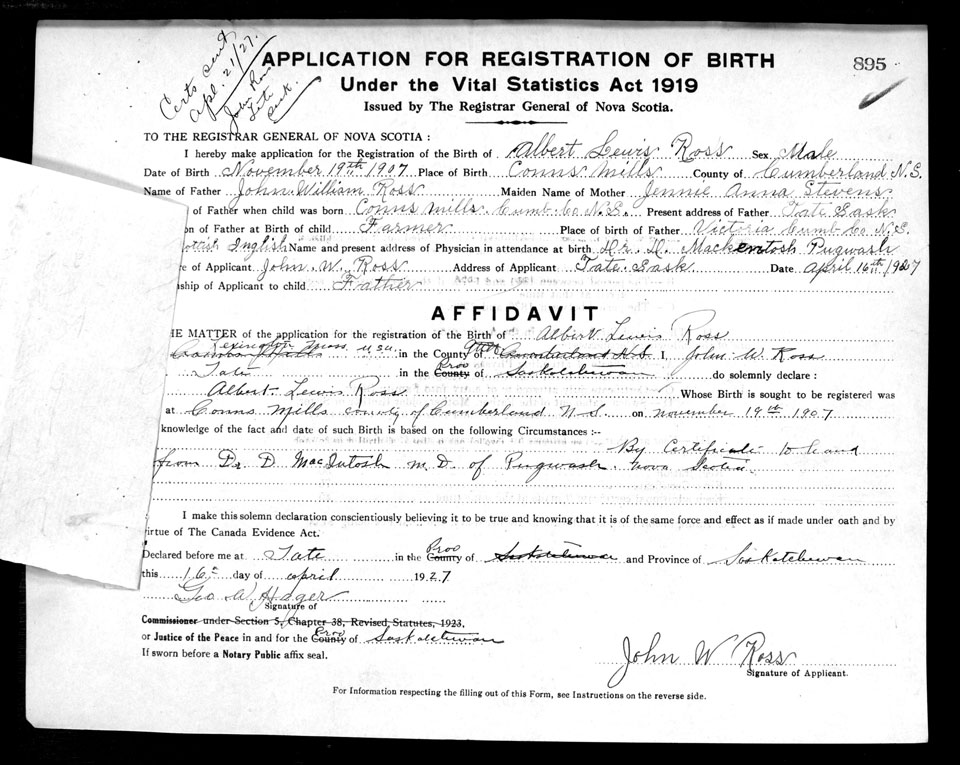 Certs sent
Apl 21/27.
John Ross
Tate
Sask.
895
APPLICATION FOR REGISTRATION OF BIRTH
Under the Vital Statistics Act 1919
Issued by The Registrar General of Nova Scotia.
TO THE REGISTRAR GENERAL OF NOVA SCOTIA :
I hereby make application for the Registration of the Birth of Albert Lewis Ross Sex Male
Date of Birth November 19th 1907 Place of Birth Conns Mills County of Cumberland N.S.
Name of Father John William Ross Maiden Name of Mother Jennie Anna Stevens
of Father when child was born Conns Mills Cumb. Co N.S. Present address of Father Tate Sask
on of Father at Birth of child Farmer Place of birth of Father Victoria Cumb Co N.S.
English Name and present address of Physician in attendance at birth Dr. D. Mackentosh Pugwash
e of Applicant John. W. Ross Address of Applicant Tate. Sask Date April 16th 1927
ship of Applicant to child Father
AFFIDAVIT
HE MATTER of the application for the registration of the Birth of Albert Lewis Ross
Lexington Mass. USA in the County of Cumberland N.S I, John W Ross
Tate in the Prov County of Saskatchewan do solemnly declare :
Albert Lewis Ross Whose Birth is sought to be registered was
at Conns Mills county of Cumberland N S. on november 19th 1907
knowledge of the fact and date of such Birth is based on the following Circumstances :--
By Certificate to hand
from Dr. D. MacIntosh m.D. of Pugwash. Nova Scotia
I make this solemn declaration conscientiously believing it to be true and knowing that it is of the same force and effect as if made under oath and by
irtue of The Canada Evidence Act.
Declared before me at Tate in the Prov County of Saskatchewan and Province of Saskatchewan
this 16th day of april 1927
Geo W Hager
Signature of
Commissioner under Section 5, Chapter 38, Revised, Statutes, 1923,
or Justice of the Peace in and for the Prov County of Saskatchewan
If sworn before a Notary Public affix seal.
John W Ross
Signature of Applicant.
For Information respecting the filling out of this Form, see Instructions on the reverse side.